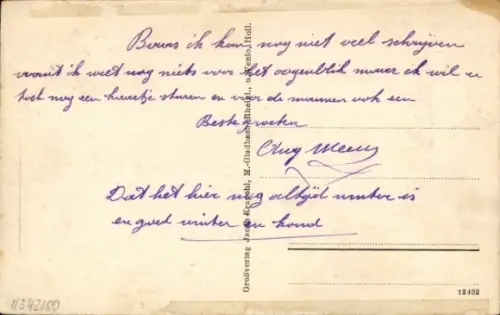 Bours ik kan nog niet veel schrijven
want ik weet nog niets voor het oogenblik maar ik wil u
toch nog een kaartje sturen en voor de mannen ook een
Beste groeten
Aug Meeus
Dat het hier nog altijd winter is
en goed winter en koud
Großverlag Jacob Krapohl, M.-Gladbach-Rheinl., u. Venlo, Holl.
12402
11342160